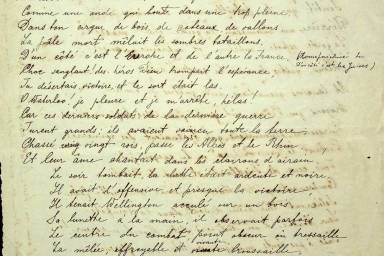 Comme une onde qui bout dans une trop pleine
Dans ton cirque de bois de coteaux de vallons
La pâle mort mêlait les sombres bataillons.
D'un côté c'est l'Europe et de l'autre la France
Choc sanglant! des héros Dieu trompait l'espérance
Tu désertais, victoire, et le sort était las
O Waterloo! je pleure et je m'arrête, hélas!
Car ces derniers soldats de la dernière guerre
Furent grands; ils avaient vaincu toute la terre
Chassé vingt rois, passé les Alpes et le Rhin
Et leur âme chantait dans les clairons d'airain
Le soir tombait, la lutte était ardente et noire
Il avait l'offensive et presque la victoire
Il tenait Wellington acculé sur un bois
Sa lunette à la main, il observait parfois
Le centre du combat point obscur où tressaille
La mêlée, effroyable et vivante broussaille